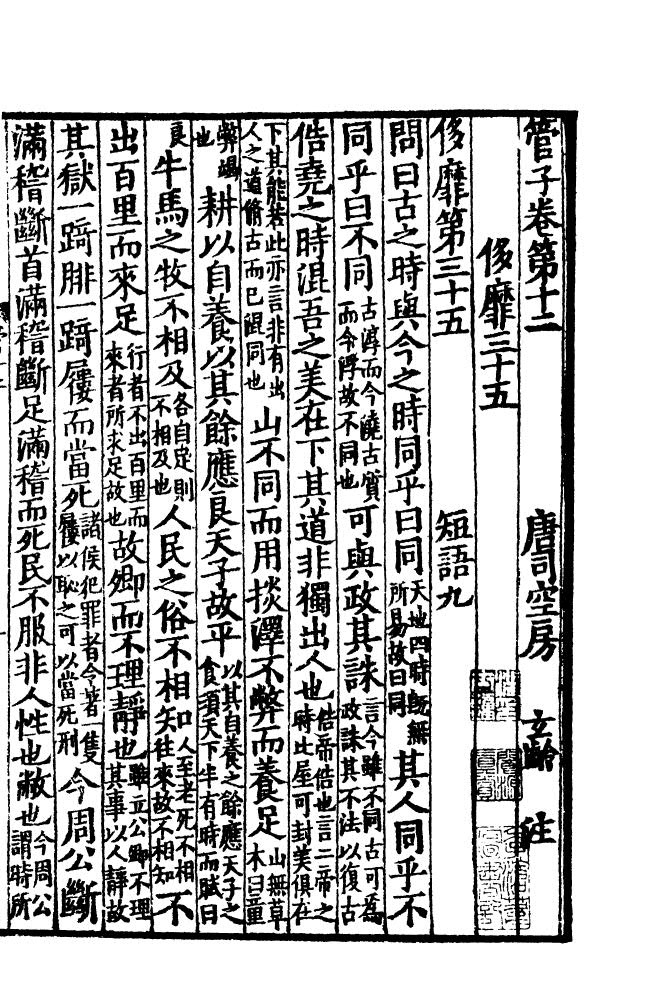 管子卷第十二 唐司空房 玄齡 注
侈靡三十五
侈靡第三十五 短語九
問曰古之時與今之時同乎曰同天地四時旣無所易故曰同其人同乎不
同乎曰不同古淳而今澆古質而今浮故不同也可與政其誅言今雖不同古可爲政誅其不法以復古
俈堯之時混吾之美在下其道非獨出人也俈帝俈也言二帝之時比屋可封美俱在
下其能若此亦言非有出人之道脩古而已混同也山不同而用掞澤不弊而養足山無草木曰童
弊竭也耕以自養以其餘應良天子故平以其自養之餘應天子之食須天下牛有時而賦曰
良牛馬之牧不相及各自足則不相及也人民之俗不相知人至老死不相往來故不相知不
出百里而來足行者不出百里而來者所求足故也故卿而不理靜也雖立公卿不理其事以人靜故
其獄一踦腓一踦屨而當死諸侯犯罪者令著隻屨以恥之可以當死刑今周公斷
滿稽斷首滿稽斷足滿稽而死民不服非人性也敝也今周公謂時所